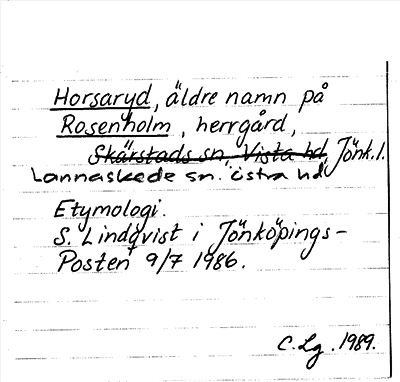 Horsaryd, äldre namn på
Rosenholm, herrgård,
Skärstads sn, Vista hd, Jönk.l.
Lannaskede sn. östra hd
Etymologi.
S. Lindqvist i Jönköpings-
Posten 9/7 1986.
C. Lg. 1989.